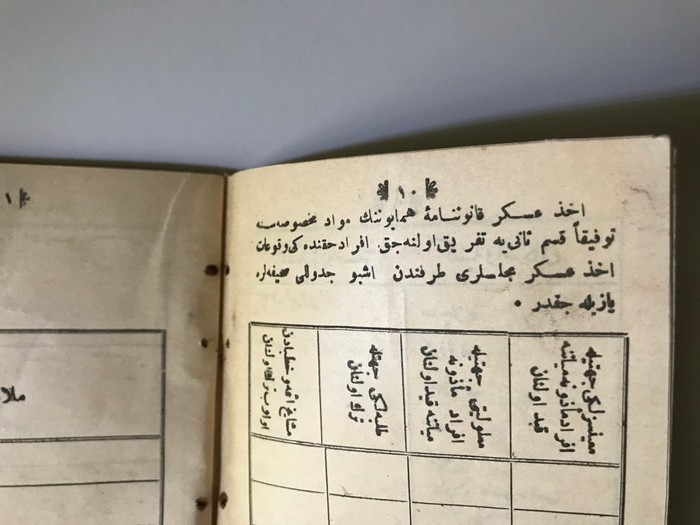 ١٠
اخذ عسكر قانوننامهٔ همايوننك مواد مخصوصه‌سنه
توفيقاً قسم ثانی‌يه تفريق اولنه‌جق افراد حقنده‌كی وقوعات
اخذ عسكر مجلسلری طرفندن اشبو جدوللی صحيفه‌لره
يازيله جقدر
معينسزلكی جهتيله
افراد مأذونه ميانه
قيد اولنان
معلوليتی جهتيله
افراد مأذونه
ميانه قيد اولنان
طلبه‌لكی جهتله
ترك اولنان
مشايخ ائمه و خطبادن
اولوب ترك اولنان
١
ملا